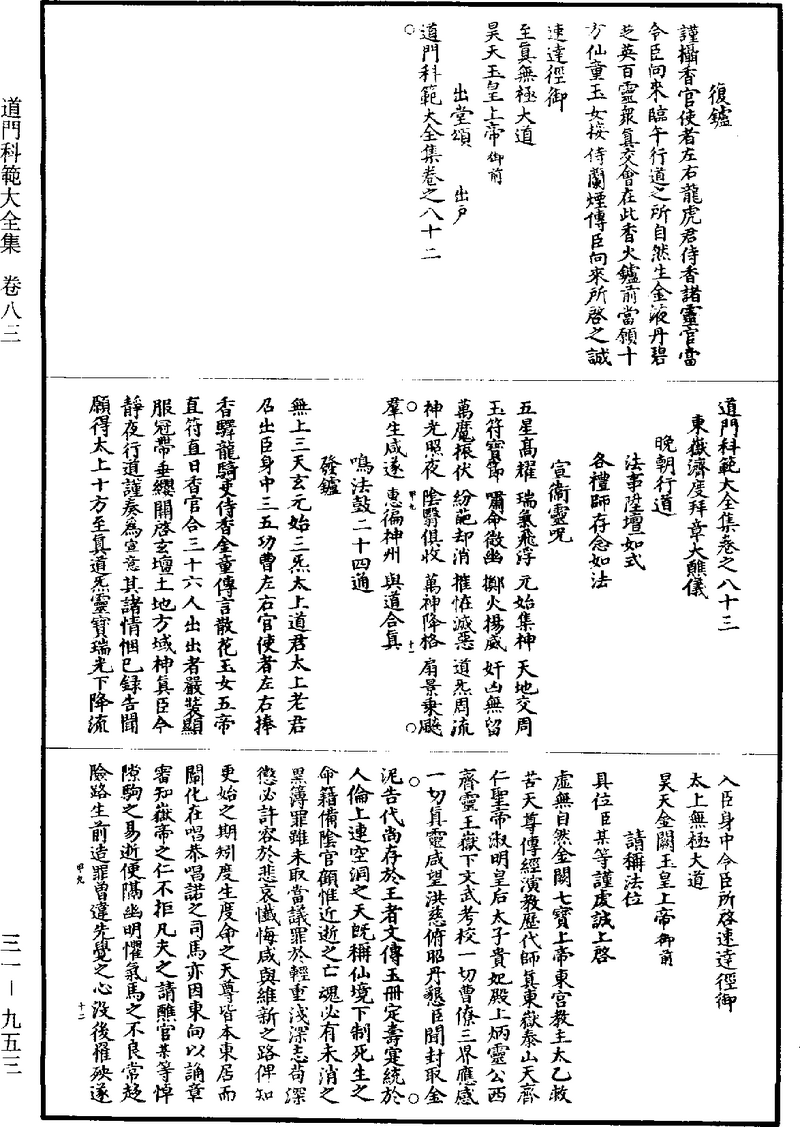 道門科範大全集　卷八三
三一—九五三
復鑪
謹攝香官使者左右龍虎君侍香諸靈官當
令臣向來臨午行道之所自然生金液丹碧
芝英百靈衆真交會在此香火鑪前當願十
方仙童玉女接侍蘭煙傳臣向來所啓之誠
速達徑御
至真無極大道
昊天玉皇上帝御前
出堂頌　出戶
道門科範大全集卷之八十二
道門科範大全集卷之八十三
東嶽濟度拜章大醮儀
晚朝行道
法事陞壇如式
各禮師存念如法
宣衛靈呪
五星高耀　瑞氣飛浮　元始集神　天地交周
玉符寶節　嘯命徵幽　擲火揚威　奸凶無留
萬魔振伏　紛葩却消　摧怪滅惡　道炁周流
神光照夜　陰翳俱收　萬神降格　扇景乘飈
羣生咸遂　惠徧神州　與道合真
甲九
十一
鳴法鼓二十四通
發鑪
無上三天玄元始三炁太上道君太上老君
召出臣身中三五功曹左右官使者左右捧
香驛龍騎吏侍香金童傳言散花玉女五帝
直符直日香官合三十六人出出者嚴裝顯
服冠帶垂纓關啓玄壇土地方域神真臣今
靜夜行道謹奏為宣意其諸情悃已録告聞
願得太上十方至真道炁靈寶瑞光下降流
入臣身中令臣所啓速達徑御
太上無極大道
昊天金闕玉皇上帝御前
請稱法位
具位臣某等謹虔誠上啓
虛無自然金闕七寶上帝東宮教主太乙救
苦天尊傳經演教歷代師真東嶽泰山天齊
仁聖帝淑明皇后太子貴妃殿上炳靈公西
齊靈王嶽下文武考校一切曹僚三界應感
一切真靈咸望洪慈俯昭丹懇臣聞封取金
泥告代尚存於王者文傳玉冊定壽寔統於
人倫上連空洞之天既稱仙境下制死生之
命籍備陰官顧惟近逝之亡魂必有未消之
黑簿罪雖未取當議罪於輕重淺深志苟深
懲必許容於悲哀懺悔咸與維新之路俾知
更始之期矧度生度命之天尊皆本東居而
闡化在唱恭唱諾之司馬亦因東向以誦章
審知嶽帝之仁不拒凡夫之請醮官某等悼
隙駒之易逝便隔幽明懼氣馬之不良常趍
險路生前造罪曾違先覺之心沒後罹殃遂
甲九
十二